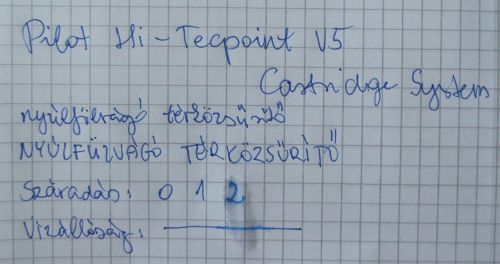 Pilot Hi-Tecpoint V5
Cartridge System
nyúlfülvágó térközsűrítő
NYÚLFÜLVÁGÓ TÉRKÖZSŰRÍTŐ
Száradás: 0 1 2
Vízállóság: